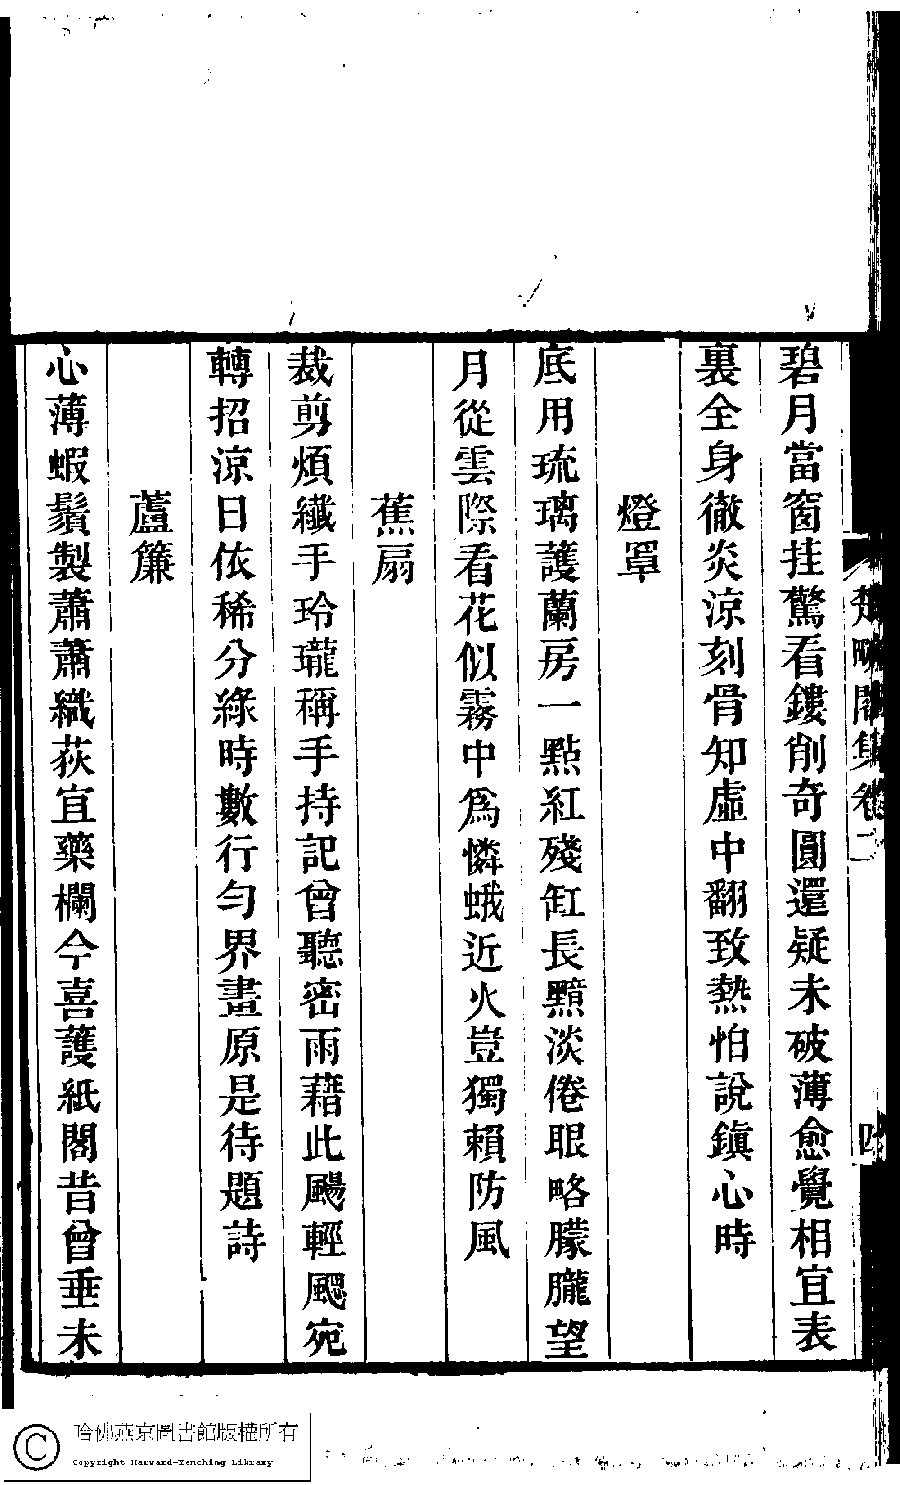 碧月當窗挂驚看鏤削奇圓還疑未破薄愈覺相宜表
裏全身徹炎涼刻骨知虛中翻致熱怕說鎮心時
燈罩
底用琉璃護蘭房一點紅殘缸長黯淡倦眼略朦朧望
月從雲際看花似霧中為憐蛾近火豈獨賴防風
蕉扇
裁剪煩纖手玲瓏稱手持記曾聽密雨藉此颺輕颸宛
轉招涼日依稀分綠時數行勻界畫原是待題詩
蘆簾
心薄蝦鬚製蕭蕭織荻宜藥欄今喜護紙閣昔曾垂未
集卷二
四
哈佛燕京圖書館版權所有
Copyright Harvard-Yenching Library